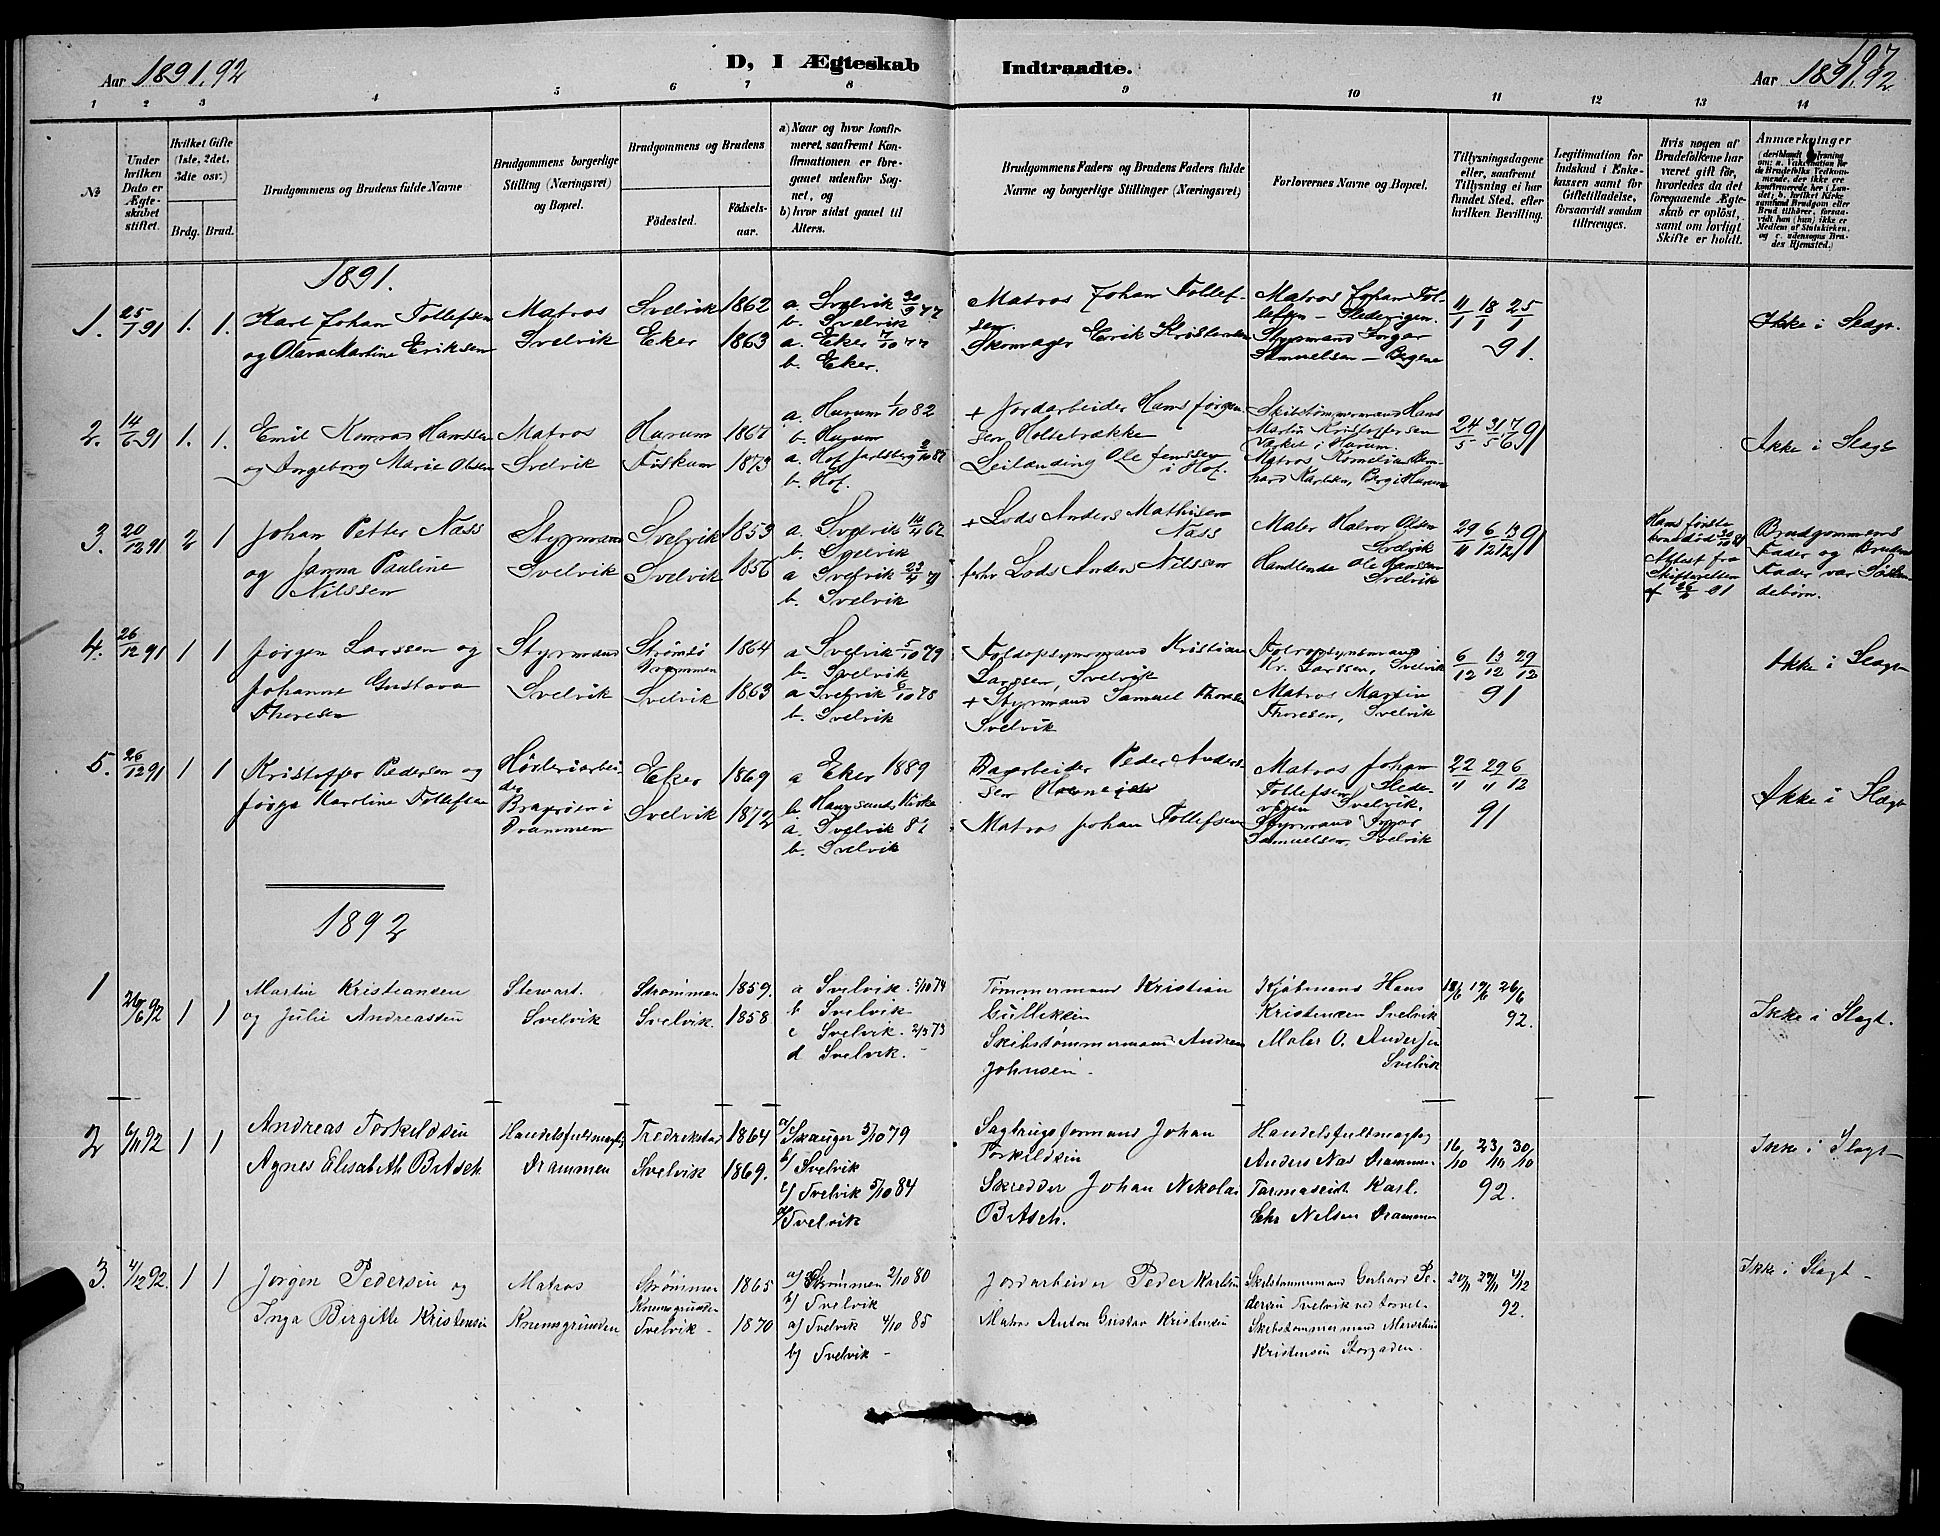 Aar 1891.92
D, I Ægteskab Indtraadte.
197
Aar 1891.92
1 2 3 4 5 6 7 8 9 10 11 12 13 14
№
Under hvilken Dato er Ægteskabet stiftet.
Hvilket Gifte (1ste, 2det, 3die osv.)
Brdg. Brud.
Brudgommens og Brudens fulde Navne
Brudgommens borgerlige Stilling (Næringsvei) og Bopæl.
Brudgommens og Brudens
Fødested.
Fødselsaar.
a) Naar og hvor konfirmeret, saafremt Konfirmationen er foregaaet udenfor Sognet, og
b) hvor sidst gaaet til Alters.
Brudgommens Faders og Brudens Faders fulde Navne og borgerlige Stillinger (Næringsvei)
Forlovernes Navne og Bopæl.
Tillysningsdagene eller, saafremt Tillysning ei har fundet Sted, efter hvilken Bevilling.
Legitimation for Indskud i Enkekassen samt for Giftetilladelse, forsaavidt saadan tiltrænges.
Hvis nogen af Brudefolkene har været gift før, hvorledes da det foregaaende Ægteskab er opløst, samt om lovligt Skifte er holdt.
Anmærkninger
1891.
1. 25/1 91 1. 1.
Karl Johan Tollefsen
og Olava Martine Eriksen
Matros
Svelvik
Svelvik 1862
Eker 1863
a. Svelvik 30/9 77
b. Svelvik
a. Eker 7/10 77
b. Eker.
Matros Johan Tollefsen
Skomager Erik Kristensen
Matros Johan Tollefsen
Styrmand Ingar
Samuelsen – Bergene
11/1 18/1 25/1
91.
Ikke i Slægt.
2. 14/6 91 1. 1.
Emil Konrad Hanssen
og Ingeborg Marie Olsen
Matros
Svelvik
Hurum 1867
Fiskum 1873
a. Hurum 1/10 82
b. Hurum
a. Hof Jarlsberg 2/10 87
b. Hof.
+ Jordarbeider Hans Jørgensen Holtebrække
Leilænding Ole Jenssen
i Hof.
Skibstømmermand Hans
Martin Kristoffersen
Værket i Hurum.
Matros Kornelius Bernhard Karlsen, Berg i Hurum
24/5 31/5 7/6 91
Ikke i Slægt
3. 20/12 91 2 1
Johan Petter Næss
og Janna Pauline
Nilssen
Styrmand
Svelvik
Svelvik 1853
Svelvik 1856
a. Svelvik 14/4 67
b. Svelvik
a Svelvik 23/4 71
b. Svelvik
+ Lods Anders Mathisen
Næss
fhv Lods Anders Nilssen
Maler Halvor Olsen
Svelvik
Handlende Ole Hanssen
Svelvik
29/11 6/12 13/12 91
Hans første
Attest fra
Skifteretten
af 26/11 91
Brudgommens
Fader og Brudens
Fader var Søskendebørn.
4. 26/12 91 1 1
Jørgen Larssen og
Johanne Gustava
Thoresen
Styrmand
Svelvik
Strømsø
Drammen 1864
Svelvik 1863
a Svelvik 5/10 79
b. Svelvik
a Svelvik 6/10 78
b. Svelvik
Toldopsynsmand Kristian
Larssen, Svelvik
+ Styrmand Samuel Thoresen
Svelvik
Toldopsynsmand
Kr. Larssen, Svelvik
Matros Martin
Thoresen, Svelvik
6/12 13/12 29/12
91
Ikke i Slægt
5. 26/12 91 1 1
Kristoffer Pedersen og
Jørga Karoline Tollefsen
Høvleriarbeider
Bragerøen i
Drammen
Eker 1869
Svelvik 1872
a Eker 1889
b. Haugsunds Kirke
a. Svelvik 87
b. Svelvik
Peder Andersen
Matros Johan Tollefsen
Matros Johan
Tollefsen,
Svelvik.
Styrmand Ingar
Samuelsen, Svelvik
22/11 29/11 6/12
91
Ikke i Slægt
1892
1 26/6 92 1 1
Martin Kristiansen
og Julie Andreassen
Stewart.
Svelvik
Strømmen 1859.
Svelvik. 1858
a Svelvik. 5/10 74
b Svelvik
c Svelvik. 2/3 73
d Svelvik. –
Tømmermand Kristian
Gulliksen
Skibstømmermand Andreas
Johnsen –
Kjøbmand Hans
Kristensen Svelvik
Maler O. Andersen
Svelvik
12/6 19/6 26/6
92.
Ikke i Slægt.
2 6/11 92 1 1
Andreas Torkildsen
Agnes Elisabeth Bitsch
Handelsfuldmægtig
Drammen
Fredrikstad 1864
Svelvik 1869.
a/ Skauger 5/10 79
b/ Svelvik
c/ Svelvik 5/10 84
d/ Svelvik
Sagbrugsformand Johan
Torkildsen
Skredder Johan Nikolai
Bitsch.
Handelsfuldmægtig
Anders Næs Drammen
Farmaseut Karl
Nelsen Drammen
16/10 23/10 30/10
92.
Ikke i Slægt
3. 4/12 92. 1 1
Jørgen Pedersen og
Inga Birgitte Kristensen
Matros
Knemsgrunden
Strømmen 1865
Knemsgrunden
Svelvik – 1870
a) Strømmen 2/10 80
b) Svelvik
a) Svelvik 4/10 85
b) Svelvik –
Jordarbeider Peder Karlsen
Matros Anton Gustav Kristensen
Skibstømmermand Gerhard Pedersen Svelvik ved torvet.
Skibstømmermand
Kristensen Storgaden.
20/11 27/11 4/12
92.
Ikke i Slægt –